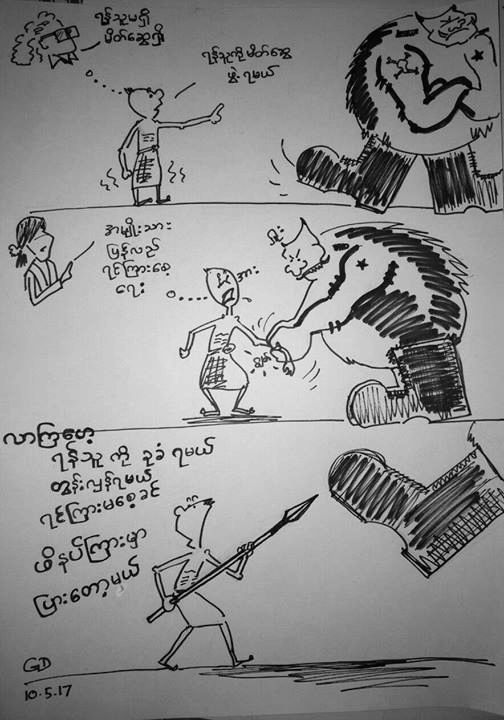 ရန်သူမရှိ
မိတ်ဆွေရှိ
ရန်သူကိုမိတ်ဆွေ
ဖွဲ့ ရမယ်
အမျိုးသား
ပြန်လည်
ရင်ကြားစေ့
ရေး
အား
လာကြဟေ့
ရန်သူ ကို ခုခံ ရမယ်
တွန်းလှန်ရမယ်
ရင်ကြားမစေ့ခင်
ဖိနပ်ကြားမှာ
ပြားတော့မယ်
GD
10.5.17